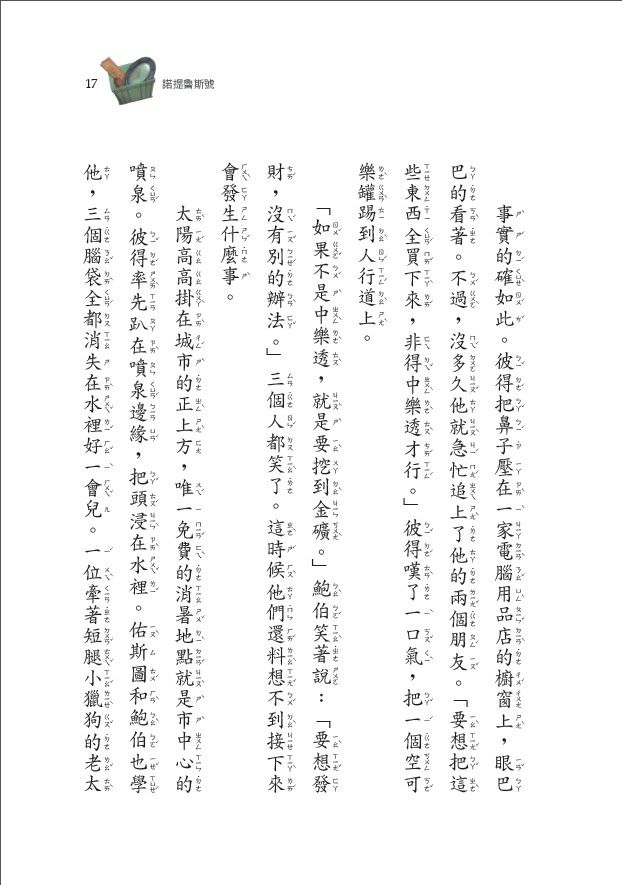 17
諾提魯斯號
事實的確如此。彼得把鼻子壓在一家電腦用品店的櫥窗上，眼巴
巴的看著。不過，沒多久他就急忙追上了他的兩個朋友。「要想把這
些東西全買下來，非得中樂透才行。」彼得嘆了一口氣，把一個空可
樂罐踢到人行道上。
「如果不是中樂透，就是要挖到金礦。」鮑伯笑著說：「要想發
財，沒有別的辦法。」三個人都笑了。這時候他們還料想不到接下來
會發生什麼事。
太陽高高掛在城市的正上方，唯一免費的消暑地點就是市中心的
噴泉。彼得率先趴在噴泉邊緣，把頭浸在水裡。佑斯圖和鮑伯也學
他，三個腦袋全都消失在水裡好一會兒。一位牽著短腿小獵狗的老太